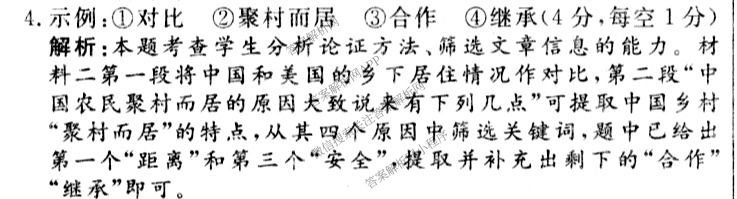 4. 示例:①对比 ②聚村而居 ③合作 ④继承(4分,每空1分)
解析:本题考查学生分析论证方法、筛选文章信息的能力。材
料二第一段将中国和美国的乡下居住情况作对比,第二段“中
国农民聚村而居的原因大致说来有下列几点”可提取中国乡村
“聚村而居”的特点,从其四个原因中筛选关键词,题中已给出
第一个“距离”和第三个“安全”,提取并补充出剩下的“合作”
“继承”即可。